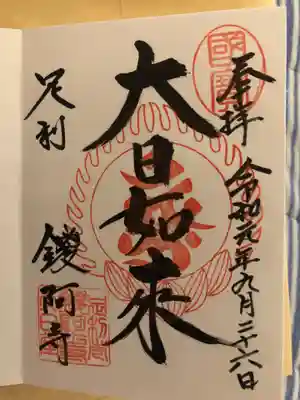 奉拝 令和元年九月二十六日
大日如来
足利 鑁阿寺
国宝